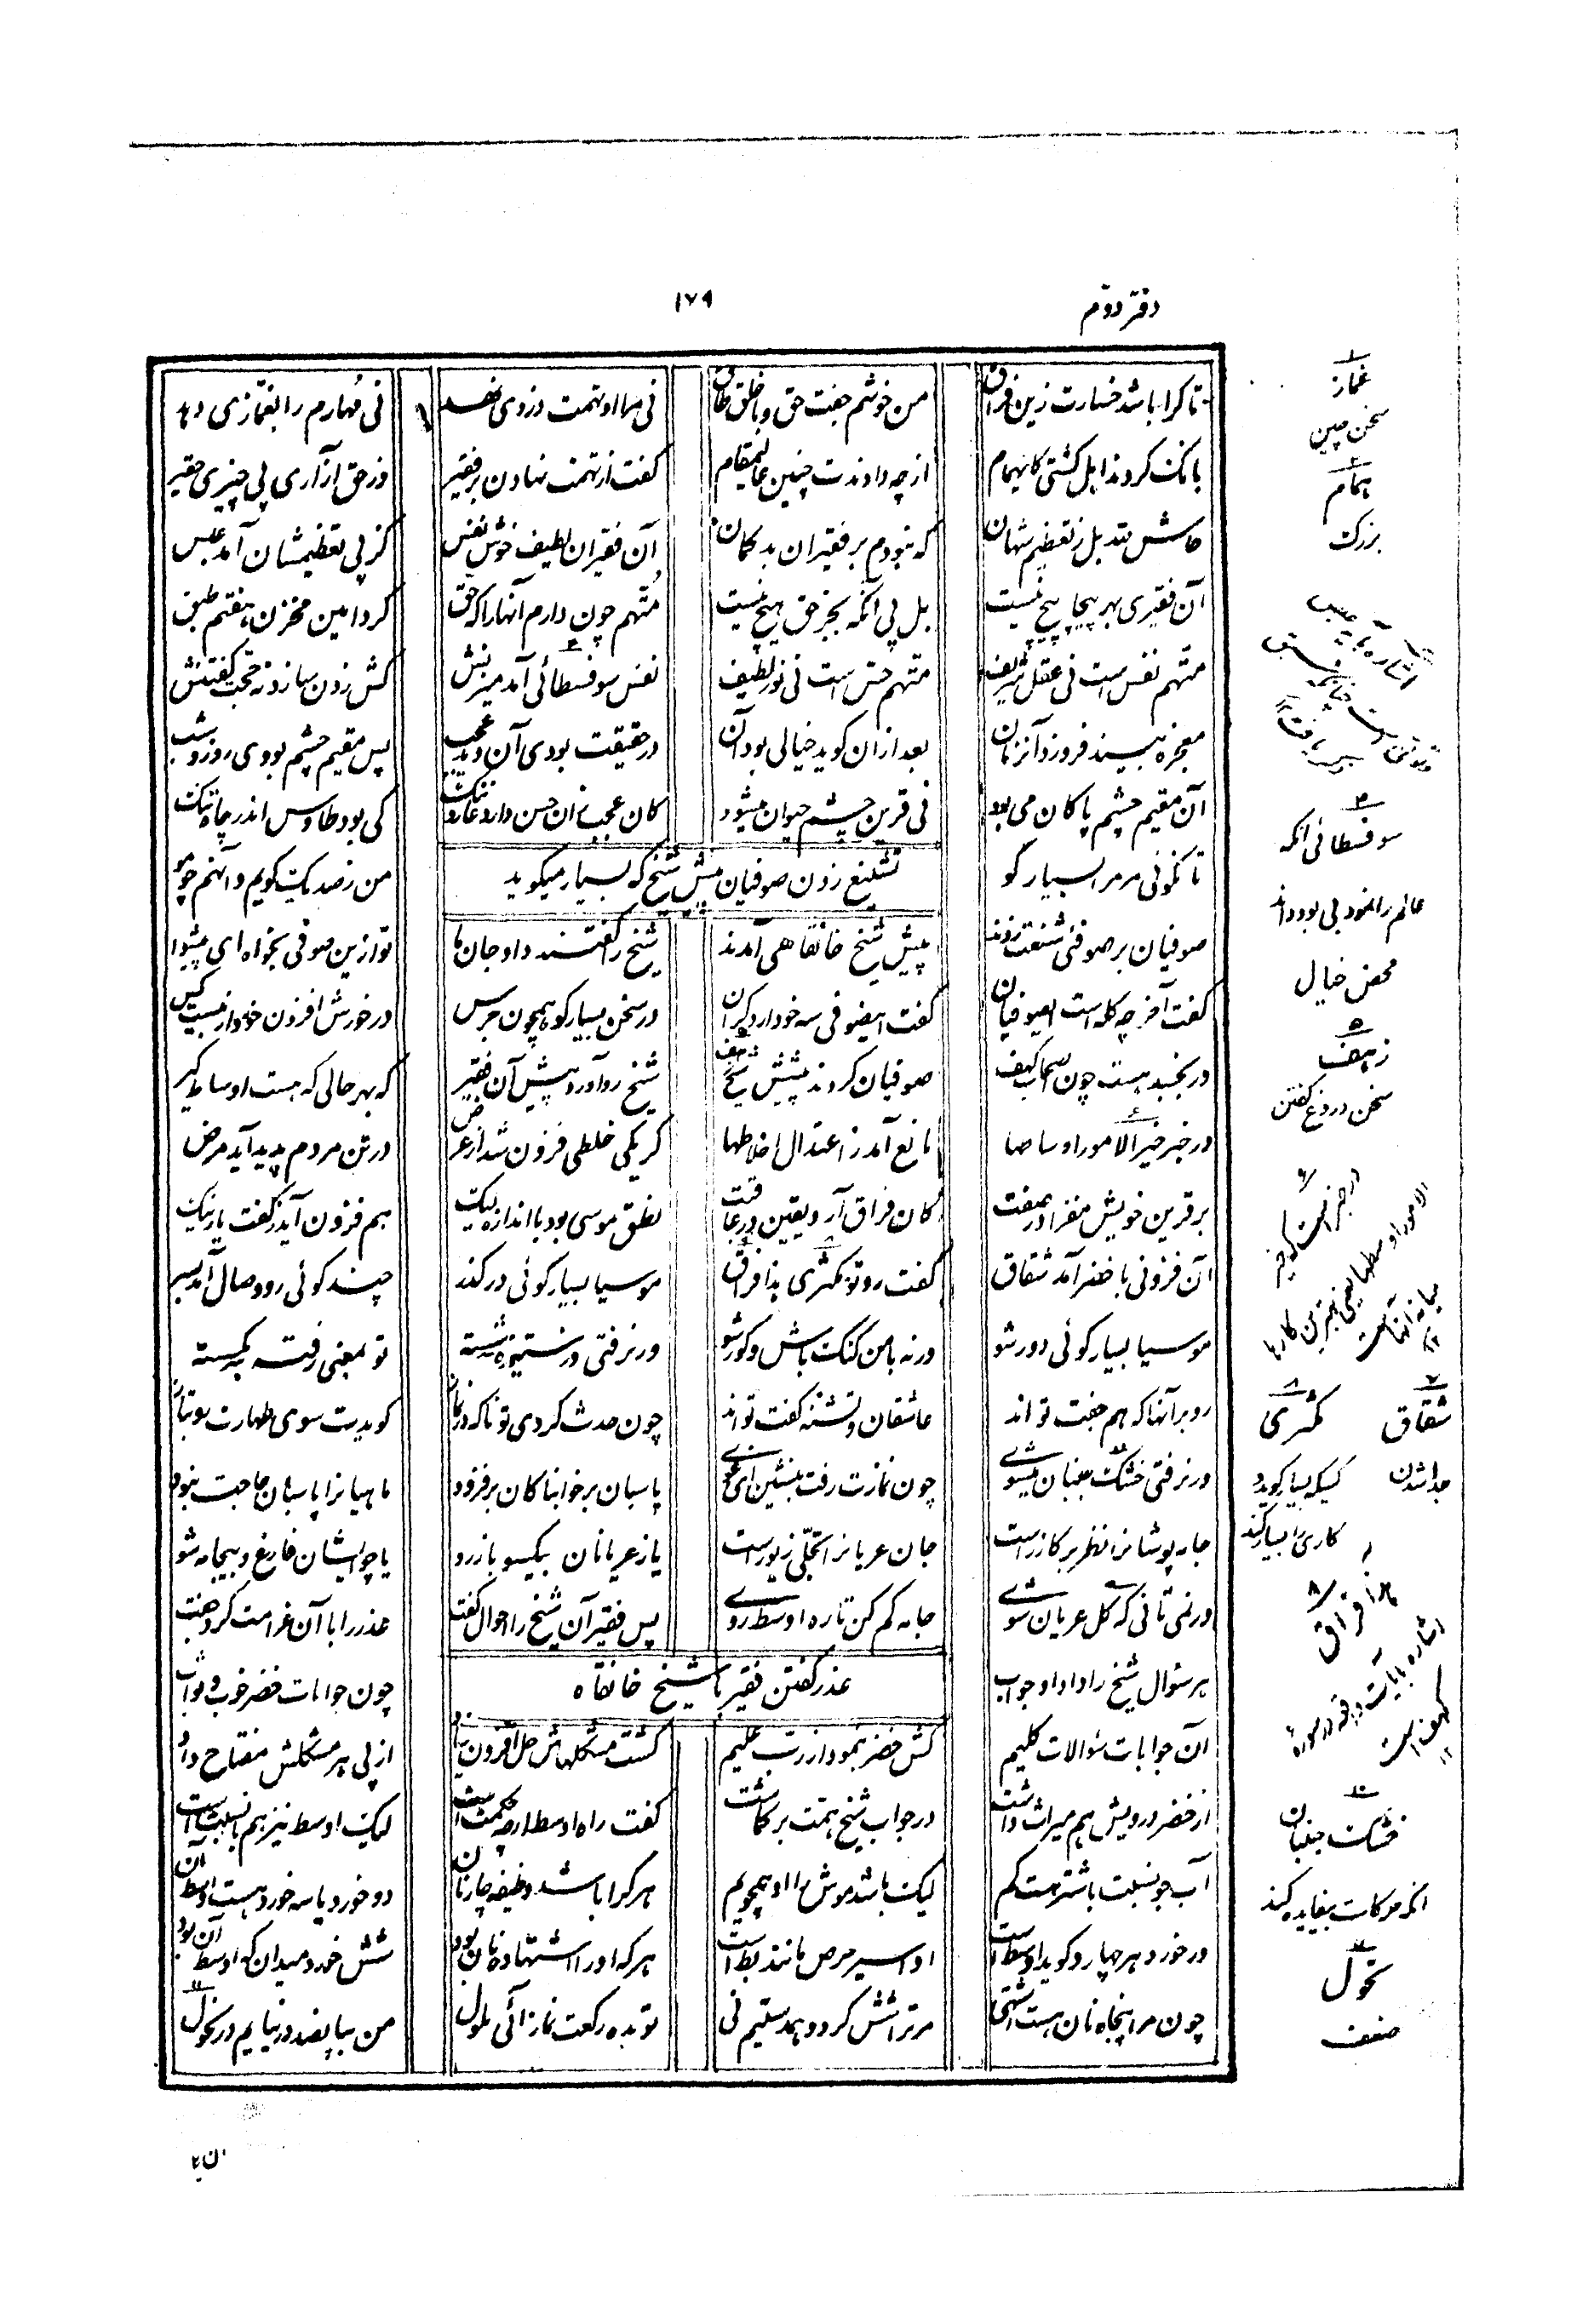 دفتر دوم
۱۷۹
تا کرا باشد خسارت زین فراق من خوشم جفت حق و با خلق طاق نی مرا او تهمت دزدی نهد نی مهارم را بغمازی دهد
بانک کردند اهل کشتی کایهمام از چه دادندت چنین عالیمقام گفت از تهمت نهادن بر فقیر در حق آزاری پی چیزی حقیر
حاش لله بل ز تعظیم شهان که نبودم بر فقیران بد گمان آن فقیران لطیف خوش نفس کز پی تعظیمشان آمد عبس
آن فقیری بهر پیچاپیچ نیست بل پی آنکه بجز حق هیچ نیست متهم چون دارم آنها را که حق کرد امین مخزن هفتم طبق
متهم نفس است نی عقل شریف متهم حس است نی نور لطیف نفس سوفسطائی آمد میزنش کش زدن سازد نه حجت گفتنش
معجزه بیند فروزد آنزمان بعد از ان گوید خیالی بود آن در حقیقت بودی آن دید عجب پس مقیم چشم بودی روز و شب
آن مقیم چشم پاکان می بود نی قرین چشم حیوان میشود کان عجب زان حس دارد عار و ننگ کی بود طاوس اندر چاه تنگ
تا نگوئی مر مرا بسیار گو من ز صد یک گویم و آنهم چو مو
تشنیع زدن صوفیان پیش شیخ که بسیار میگوید
صوفیان بر صوفئی شنعت زدند پیش شیخ خانقاهی آمدند شیخ را گفتند داد جان ما تو ازین صوفی بخواه ای پیشوا
گفت آخر چه گله است ایصوفیان گفت اینصوفی سه خو دارد گران در سخن بسیار گو همچون جرس در خورش افزون خورد از بیست کس
ور بخسبد هست چون اصحاب کهف صوفیان کردند پیش شیخ زهف شیخ رو آورد پیش آن فقیر که بهر حالی که هست اوساط گیر
در خبر خیر الامور اوساطها نافع آمد ز اعتدال اخلاطها گر یکی خلطی فزون شد از عرض در تن مردم پدید آید مرض
بر قرین خویش مفزا در صفت کان فراق آرد یقین در عاقبت نطق موسی بود با اندازه لیک هم فزون آید ز گفت یار نیک
آن فزونی با خضر آمد شقاق گفت رو تو مکثری هذا فراق موسیا بسیار گوئی در گذر چند گوئی رو وصال آمد بسر
موسیا بسیار گوئی دور شو ورنه با من گنگ باش و کور شو ور نرفتی وز ستیزه شسته تو بمعنی رفته بگسسته
رو بر آنها که هم جفت تو اند عاشقان و تشنه گفت تو اند چون حدث کردی تو ناگه در نماز گویدت سوی طهارت رو بتاز
ور نرفتی خشک جنبان میشوی چون نمازت رفت بنشین ای غوی پاسبان بر خوابناکان بر فزود ماهیانرا پاسبان حاجت نبود
جامه پوشانرا نظر بر گازر است جان عریانرا تجلی زیور است یا ز عریانان بیکسو باز رو یا چو ایشان فارغ و بیجامه شو
ور نمی تانی که کل عریان شوی جامه کم کن تا ره اوسط روی پس فقیر آن شیخ را احوال گفت عذر را با آن غرامت کرد جفت
هر سئوال شیخ را داد او جواب چون جوابات خضر خوب و صواب
عذر گفتن فقیر با شیخ خانقاه
آن جوابات سئوالات کلیم کش خضر بنمود از رب علیم گشت مشکلهاش حل افزون زیاد از پی هر مشکلش مفتاح داد
از خضر درویش هم میراث داشت در جواب شیخ همت بر گماشت گفت راه اوسط ار چه حکمت است لیک اوسط نیز هم با نسبت است
آب جو نسبت باشتر هست کم لیک باشد موش را او همچو یم هر کرا باشد وظیفه چار نان دو خورد یا سه خورد هست اوسط آن
ور خورد هر چار و گوید اوسط است او اسیر حرص مانند بط است هر که او را اشتها ده نان بود شش خورد میدان که اوسط آن بود
چون مرا پنجاه نان هست اشتهی مر ترا شش گرده همدستیم نی تو بده رکعت نماز آئی ملول من بپانصد در نیایم در نحول
۱
غماز
سخن چین
۲
همام
بزرک
۴
سوفسطائی آنکه
عالم را نمود بی بود داند
محض خیال
۵
زهف
سخن دروغ گفتن
۶
در خبر است که خیر
الامور اوسطها یعنی بهترین کارها
میانه آنهاست
۷
شقاق
جدا شدن
۸
مکثری
کسیکه بسیار گوید و
کاری را بسیار کند
هذا فراق
اشاره بآیات واقعه در سوره
کهف است
۱۰
خشک جنبان
آنکه حرکات بیفایده کند
۱۱
نحول
ضعف